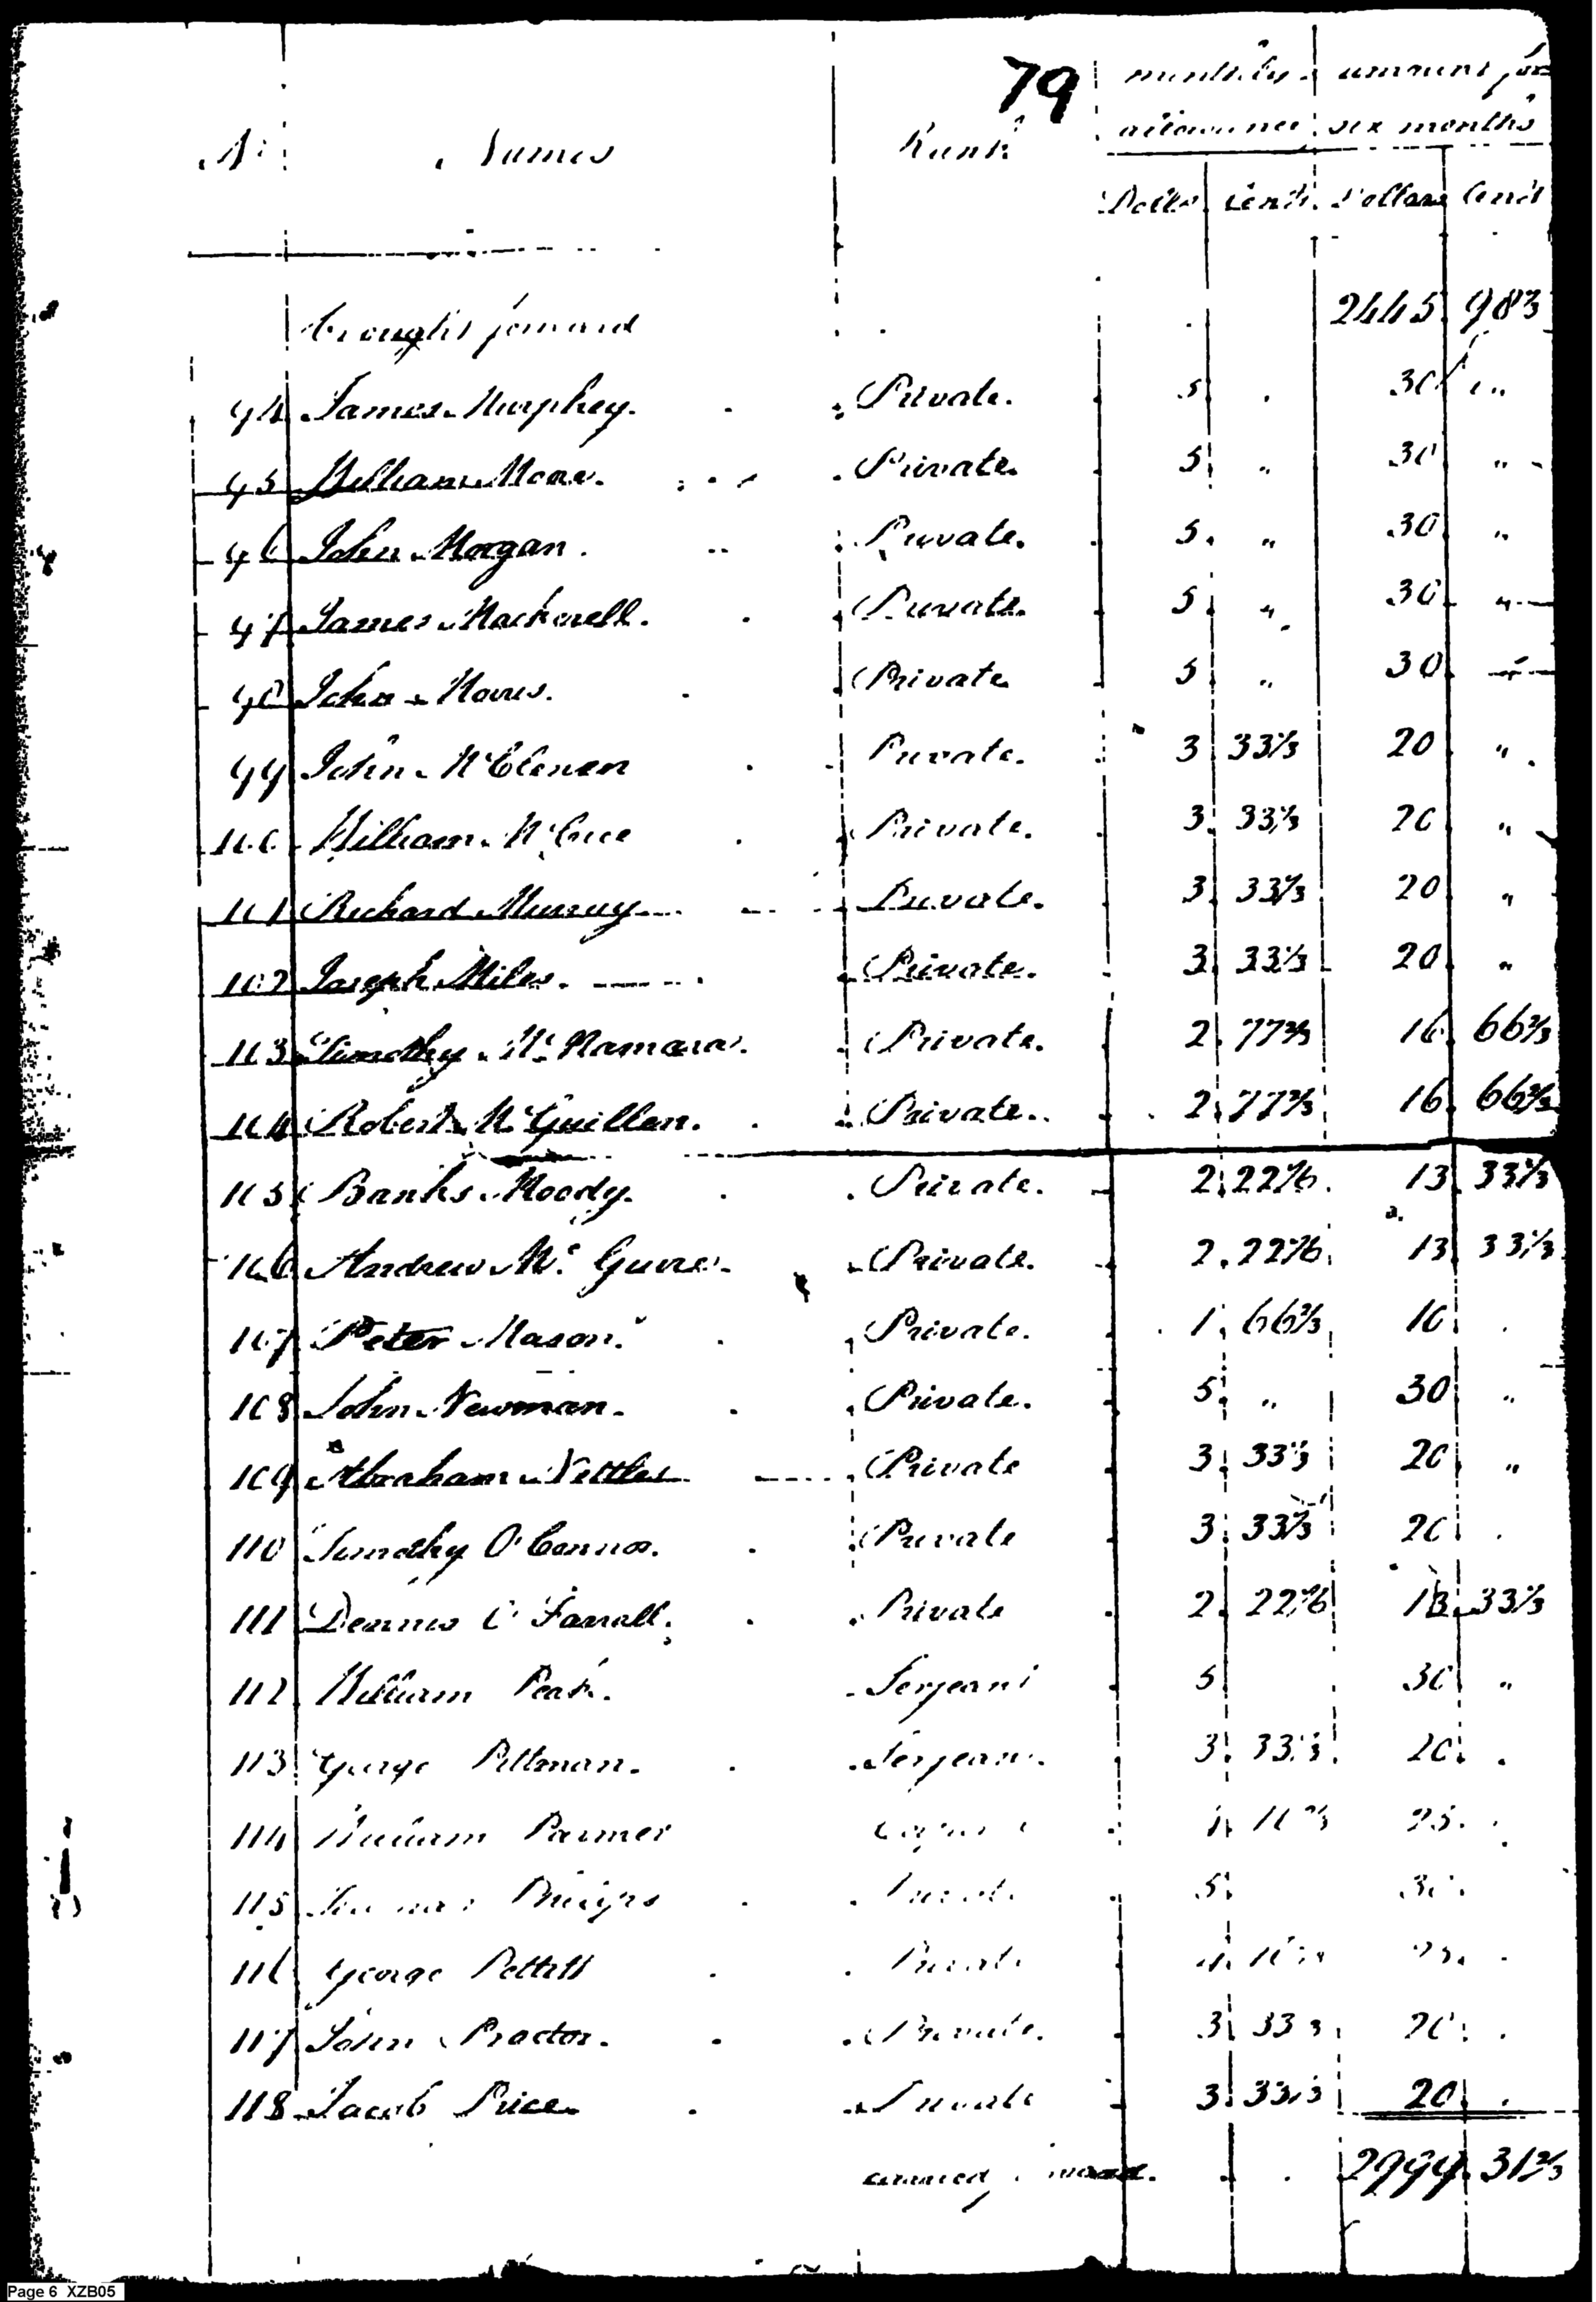 79
monthly allowance amount for six months
No. Names Rank Dolls. Cents. Dollars Cents
brought forward 2445 98 3
94 James Murphey. Private. 5 . 30 "
95 William Moore. Private. 5 " 30 "
96 John Morgan. Private. 5. " 30 "
97 James Mackerell. Private. 5. " 30 "
98 John Private 5 " 30 "
99 John McClenen Private. 3 33 1/3 20 "
100 William McCue Private. 3. 33 1/3 20 "
101 Richard Murray Private. 3. 33 1/3 20 "
102 Joseph Miles. Private. 3. 33 1/3 20. "
103 Timothy McNamara. Private. 2. 77 2/3 16. 66 2/3
104 Robert McGuillen. Private. 2. 77 2/3 16. 66 2/3
105 Banks Moody. Private. 2. 22 2/6 13. 33 1/3
106 Andrew Mc. Guire. Private. 2. 22 2/6 13. 33 1/3
107 Peter Mason. Private. 1. 66 2/3 10 .
108 John Newman. Private. 5. " 30 "
109 Abraham Nettles Private 3. 33 1/3 20. "
110 Timothy O'Connor. Private 3. 33 1/3 20 .
111 Dennis O'Farrall. Private 2. 22 2/6 13. 33 1/3
112 William Peak. Serjeant 5 30 "
113 George Pittman. Serjeant. 3. 33 1/3 20. .
114 William Parmer 4 16 2/3 25. .
115 Private 5. 30.
116 George Pettitt Private 4. 16 25. .
117 John Proctor. Private. 3. 33 1/3 20. .
118 Jacob Price. Private 3. 33 1/3 20. .
carried forward. 2994. 31 2/3
Page 6 XZB05